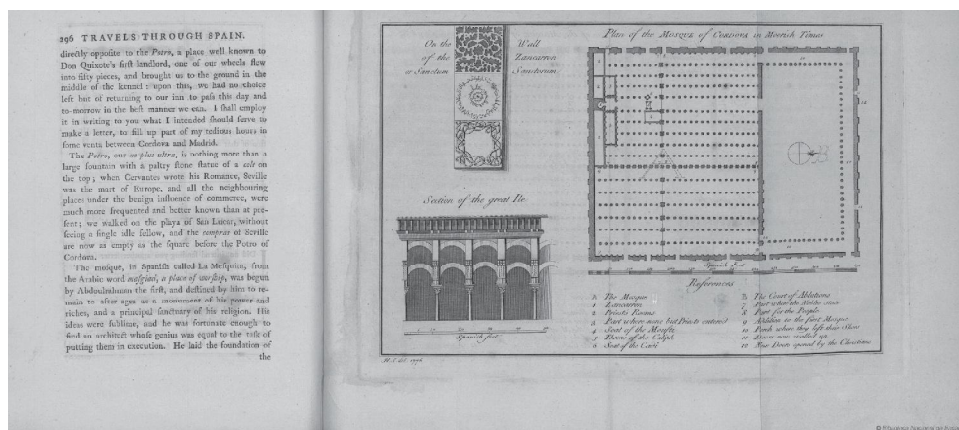 296 TRAVELS THROUGH SPAIN.
directly opposite to the Potro, a place well known to
Don Quixote's first landlord, one of our wheels flew
into fifty pieces, and brought us to the ground in the
middle of the kennel: upon this, we had no choice
left but of returning to our inn to pass this day and
to-morrow in the best manner we can. I shall employ
it in writing to you what I intended should serve to
make a letter, to fill up part of my tedious hours in
some venta between Cordova and Madrid.
The Potro, our ne plus ultra, is nothing more than a
large fountain with a paltry stone statue of a colt on
the top; when Cervantes wrote his Romance, Seville
was the mart of Europe, and all the neighbouring
places under the benign influence of commerce, were
much more frequented and better known than at pre-
sent; we walked on the playa of San Lucar, without
seeing a single idle fellow, and the compras of Seville
are now as empty as the square before the Potro of
Cordova.
The mosque, in Spanish called La Mesquita, from
the Arabic word masgiad, a place of worship, was begun
by Abdoulrahman the first, and destined by him to re-
main to after ages as a monument of his power and
riches, and a principal sanctuary of his religion. His
ideas were sublime, and he was fortunate enough to
find an architect whose genius was equal to the task of
putting them in execution. He laid the foundation of
the
On the Wall
of the Zancarron
or Sanctum Sanctorum.
Section of the great Ile
Spanish feet
Plan of the MOSQUE of CORDOVA in Moorish Times
Spanish feet
References
The Mosque
1 Zancarron
2 Priests Rooms
3 Part where none but Priests entered
4 Seat of the Moufti
5 Door of the Caliph
6 Seat of the Cadi
The Court of Ablutions
7 Part where the Nobles
8 Part for the People
9 Addition to the first Mosque
10 Porch where they left their Shoes
11 Doors now walled up
12 New Doors opened by the Christians